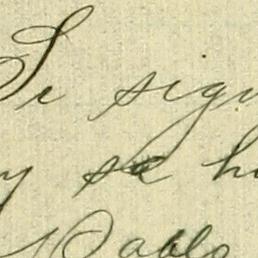 Se sigu
y se ha
Pablo